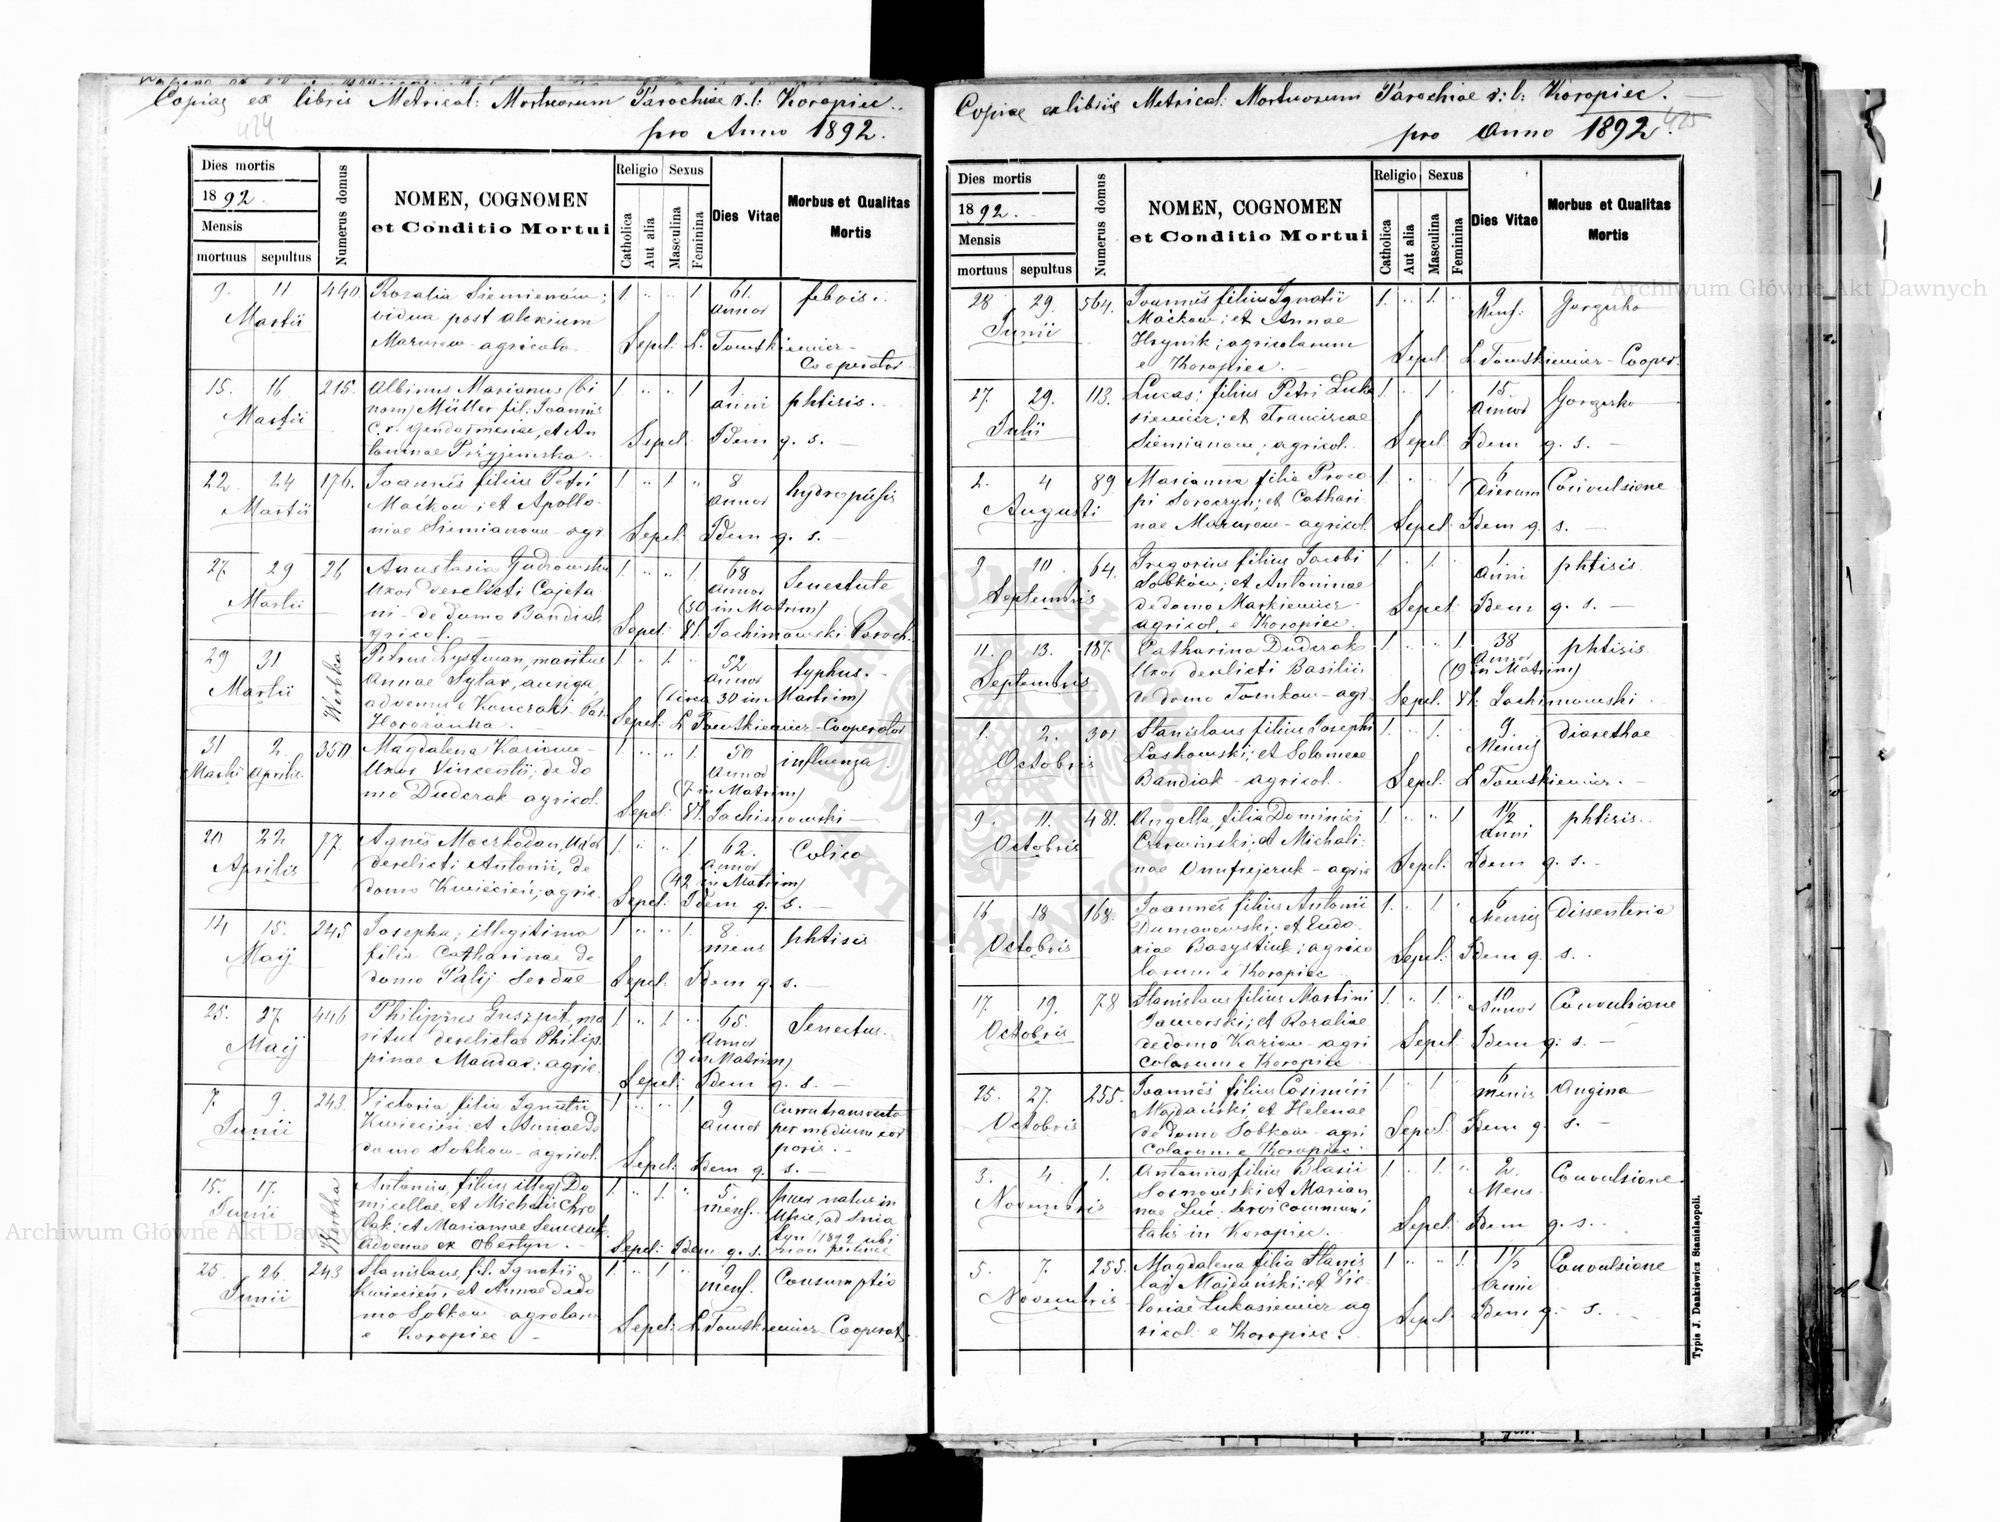 Copiae ex libris Metrical: Mortuorum Parochiae r. l: Koropiec.
424
pro Anno 1892.
Dies mortis
1892.
Mensis
mortuus sepultus
Numerus domus
NOMEN, COGNOMEN
et Conditio Mortui
Religio Sexus
Catholica
Aut alia
Masculina
Feminina
Dies Vitae
Morbus et Qualitas
Mortis
9. 11 440. Rozalia Siemienów; 1. „ „ 1 61. febris.
Martii vidua post Alexium Annor
Marusow agricola Sepel: L. Towtkiewicz-
Cooperator
15. 16. 215. Albinus Marianus (bi 1. „ „ 1 1 phtisis.
Martii nom) Müller fil. Joannis anni
c. r. Gendarmeriae, et An
toninae Przyjemska. Sepel: Idem q. s. —
22. 24 176. Joannes filius Petri 1. „ 1 „ 8 hydropisis
Martii Maćkow; et Apollo- Annor
niae Siemianow agr. Sepel: Idem q. s. —
27. 29 26 Anastasia Gudrowska 1. „ „ 1. 68 Senectute
Martii Uxor derelicti Cajeta- Annor
ni de domo Bandiak (30 in Matrim)
agricol. Sepel: Vl. Jachimowski Paroch.
29 31 Werbka Petrus Lystwan, maritus 1 „ 1. „ 52 typhus.
Martii Annae Sytar, auriga, Annor
(circa 30 in Matrim)
Sepel: L Towtkiewicz-Cooperator
31 2. 350. Magdalena Kariow- 1. „ „ 1. 50 influenza.
Martii Aprilis Uxor Vincentii, de do Annor
mo Duderak agricol. (7 in Matrim)
Sepel: Vl. Jachimowski —
20 22 77. Agnes Moczkodan, Uxor 1. „ „ 1. 62. Colica
Aprilis derelicti Antonii, de Annor
domo Kwiecien; agric. (42 in Matrim)
Sepel: Idem q. s. —
14 15. 245 Josepha; illegitima 1. „ „ 1. 8. phtisis
Maij filia Catharinae de mens
domo Palij Serdae Sepel: Idem q. s. —
25. 27. 446 Philippus Guszpit, ma 1 „ 1. „ 65. Senectus.
Maij ritus derelictae Philip- Annor
pinae Mandar; agric. (9 in Matrim)
Sepel: Idem q. s. —
7. 9. 243. Victoria, filia Ignatii 1. „ „ 1. 9 Curru transvecta
Junii Kwiecien; et Annae de Annor per medium cor
domo Sobkow agricol. poris. —
Sepel: Idem q. s. —
15. 17. Werbka Antonius, filius illeg. Do 1. „ 1. „ 5. puer natus in
Junii micellae, et Michaelis Chro mens.
Advenae ex Obertyn. Sepel: Idem q. s.
25. 26. 243 Stanislaus, fil. Ignatii 1. „ 1 „ 9 Consumptio
Junii Kwiecien; et Annae de do mens.
mo Sobkow agrolaru
e Koropiec — Sepel: L. Towtkiewicz Cooperat.
Copiae ex libris Metrical: Mortuorum Parochiae r: l: Koropiec.
425
pro Anno 1892.
Dies mortis
1892.
Mensis
mortuus sepultus
Numerus domus
NOMEN, COGNOMEN
et Conditio Mortui
Religio Sexus
Catholica
Aut alia
Masculina
Feminina
Dies Vitae
Morbus et Qualitas
Mortis
28 29. 564. Joannes filius Ignatii 1. „ 1. „ 9 Gorączka
Junii Maćkow; et Annae Mens:
Hrynik; agricolarum
e Koropiec. — Sepel: L. Towtkiewicz - Cooper.
27. 29. 113. Lucas; filius Petri Luka 1. „ 1 „ 15 Gorączka
Julii siewicz; et Franciscae Annor
Siemianow; agricol. Sepel: Idem q. s. —
2. 4 89. Marianna filia Proco- 1. „ „ 1 6 Convulsione
Augusti pi Soroczyn; et Cathari- Dierum
nae Marusow - agricol. Sepel: Idem q. s. —
9 10. 64. Gregorius filius Jacobi 1. „ 1. „ 1 phtisis
Septembris Sobków; et Antoninae Anni
de domo Markiewicz-
agricol. e Koropiec. Sepel: Idem q. s. —
11. 13. 187. Catharina Duderak 1. „ „ 1. 38 phtisis
Septembris Uxor derelicti Basilii Annor
de domo Tomkow - agr. (19 in Matrim)
Sepel: Vl: Jachimowski
1. 2. 301. Stanislaus filius Josephi 1. „ 1. „ 9. Diarethae
Octobris Laskowski; et Solomeae Mensis
Bandiak - agricol. Sepel: L Towtkiewicz. —
9. 11. 481. Angella, filia Dominici 1. „ „ 1 1 1/2 phtisis.
Octobris Czerwinski; et Michali- Anni
nae Onufrejczuk - agric Sepel: Idem q. s. —
16 18 168. Joannes filius Antonii 1. „ 1. „ 6 Dissenteria
Octobris Dumanowski; et Eudo- Mensis
xiae Basystiuk; agrico
larum e Koropiec. Sepel: Idem q. s. —
17. 19. 78 Stanislaus filius Martini 1. „ 1. „ 10 Convulsione
Octobris Jaworski; et Rozaliae Annor
de domo Kariow - agri
colarum e Koropiec Sepel: Idem q. s. —
25. 27. 255. Joannes filius Casimiri 1. „ 1 „ 6 Angina
Octobris Majdański, et Helenae mensis
de domo Sobkow - agri
colarum e Koropiec Sepel: Idem q. s. —
3. 4. 1. Antonius filius Blasii 1. „ 1. „ 2. Convulsione.
Novembris Sosnowski; et Marian Mens.
nae Luć: servi communi
tatis in Koropiec. Sepel: Idem q. s. —
5. 7. 255. Magdalena filia Stanis 1. „ „ 1. 1 1/2 Convulsione
Novembris lai Majdański: et Vic- Anni
toriae Lukasiewicz ag
ricol. e Koropiec. Sepel: Idem q. s. —
Typis J. Dankiewicz Stanislaopoli.
Archiwum Główne Akt Dawnych
Archiwum Główne Akt Dawnych